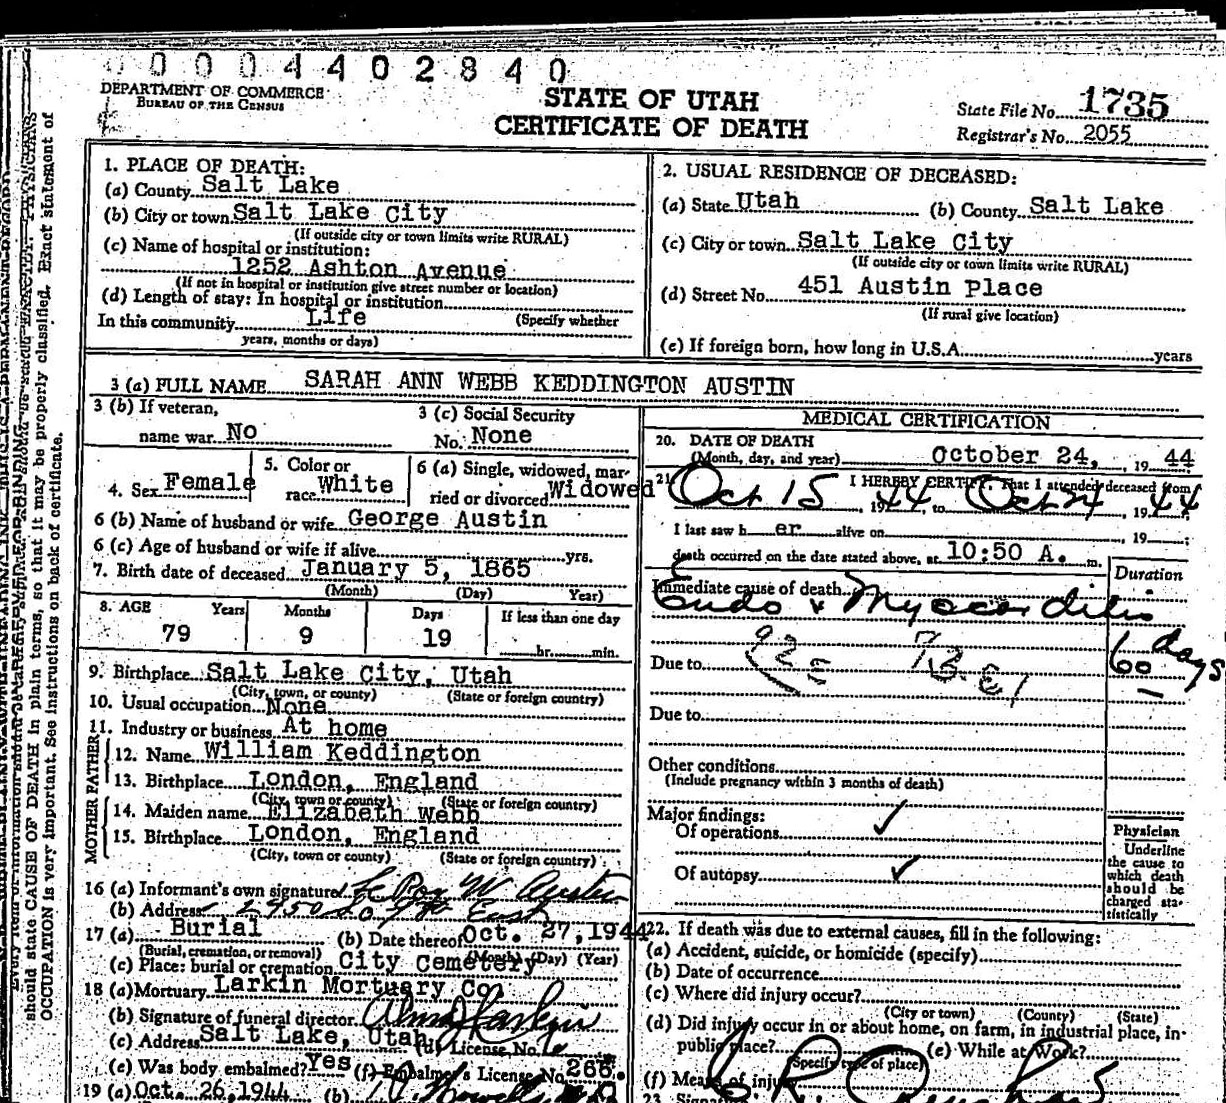 00004402840
DEPARTMENT OF COMMERCE
BUREAU OF THE CENSUS
STATE OF UTAH
CERTIFICATE OF DEATH
State File No. 1735
Registrar's No. 2055
1. PLACE OF DEATH:
(a) County Salt Lake
(b) City or town Salt Lake City
(If outside city or town limits write RURAL)
(c) Name of hospital or institution:
1252 Ashton Avenue
(If not in hospital or institution give street number or location)
(d) Length of stay: In hospital or institution
In this community Life (Specify whether
years, months or days)
2. USUAL RESIDENCE OF DECEASED:
(a) State Utah (b) County Salt Lake
(c) City or town Salt Lake City
(If outside city or town limits write RURAL)
(d) Street No. 451 Austin Place
(If rural give location)
(e) If foreign born, how long in U.S.A. years
3 (a) FULL NAME SARAH ANN WEBB KEDDINGTON AUSTIN
3 (b) If veteran,
name war No
3 (c) Social Security
No. None
4. Sex Female
5. Color or
race White
6 (a) Single, widowed, mar-
ried or divorced Widowed
6 (b) Name of husband or wife George Austin
6 (c) Age of husband or wife if alive yrs.
7. Birth date of deceased January 5, 1865
(Month) (Day) Year)
8. AGE Years Months Days If less than one day
79 9 19 hr. min.
9. Birthplace Salt Lake City, Utah
(City, town, or county) (State or foreign country)
10. Usual occupation None
11. Industry or business At home
FATHER
12. Name William Keddington
13. Birthplace London, England
(City, town or county) (State or foreign country)
MOTHER
14. Maiden name Elizabeth Webb
15. Birthplace London, England
(City, town or county) (State or foreign country)
16 (a) Informant's own signature Le Roy W Austin
(b) Address 2950 So 9th East
17 (a) Burial (b) Date thereof Oct. 27, 1944
(Burial, cremation, or removal) (Month) (Day) (Year)
(c) Place: burial or cremation City Cemetery
18 (a) Mortuary Larkin Mortuary Co
(b) Signature of funeral director
(c) Address Salt Lake, Utah (d) License No.
(e) Was body embalmed? Yes (f) Embalmer's License No. 266.
19 (a) Oct. 26, 1944 (b)
MEDICAL CERTIFICATION
20. DATE OF DEATH
(Month, day, and year) October 24, 19 44
21 I HEREBY CERTIFY, That I attended deceased from
Oct 15 1944 to Oct 24, 1944
I last saw h er alive on , 19 ;
death occurred on the date stated above, at 10:50 A. m.
Duration
Immediate cause of death
Endo & Myocarditis
60 days
Due to
Due to
Other conditions
(Include pregnancy within 3 months of death)
Major findings:
Of operations ✓
Of autopsy ✓
Physician
Underline
the cause to
which death
should be
charged sta-
tistically
22. If death was due to external causes, fill in the following:
(a) Accident, suicide, or homicide (specify)
(b) Date of occurrence
(c) Where did injury occur?
(City or town) (County) (State)
(d) Did injury occur in or about home, on farm, in industrial place, in-
public place? (e) While at Work?
(Specify type of place)
(f) Means of injury
23. Signature
should state CAUSE OF DEATH in plain terms, so that it may be properly classified. Exact statement of
OCCUPATION is very important. See instructions on back of certificate.